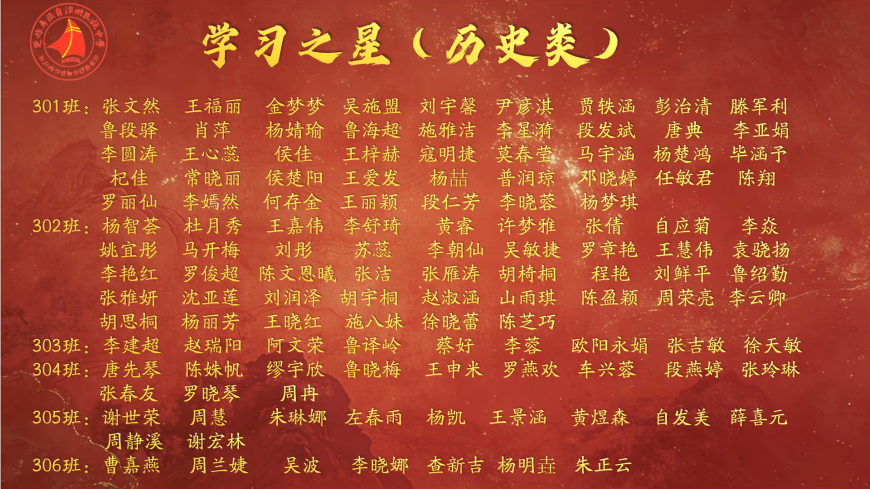 楚雄彝族自治州民族中学
学习之星（历史类）
301班：张文然 王福丽 金梦梦 吴施盟 刘宇馨 尹彦淇 贾轶涵 彭治清 滕军利
鲁段驿 肖萍 杨婧瑜 鲁海超 施雅洁 李星漪 段发斌 唐典 李亚娟
李圆涛 王心蕊 侯佳 王梓赫 寇明捷 莫春莹 马宇涵 杨楚鸿 毕涵予
杞佳 常晓丽 侯楚阳 王爱发 杨喆 普润琼 邓晓婷 任敏君 陈翔
罗丽仙 李嫣然 何存金 王丽颖 段仁芳 李晓蓉 杨梦琪
302班：杨智荟 杜月秀 王嘉伟 李舒琦 黄睿 许梦雅 张倩 自应菊 李焱
姚宜彤 马开梅 刘彤 苏蕊 李朝仙 吴敏捷 罗章艳 王慧伟 袁骁扬
李艳红 罗俊超 陈文恩曦 张洁 张雁涛 胡椅桐 程艳 刘鲜平 鲁绍勤
张雅妍 沈亚莲 刘润泽 胡宇桐 赵淑涵 山雨琪 陈盈颖 周荣亮 李云卿
胡思桐 杨丽芳 王晓红 施八妹 徐晓蕾 陈芝巧
303班：李建超 赵瑞阳 阿文荣 鲁译岭 蔡好 李蓉 欧阳永娟 张吉敏 徐天敏
304班：唐先琴 陈姝帆 缪宇欣 鲁晓梅 王申米 罗燕欢 车兴蓉 段燕婷 张玲琳
张春友 罗晓琴 周冉
305班：谢世荣 周慧 朱琳娜 左春雨 杨凯 王景涵 黄煜森 自发美 薛喜元
周静溪 谢宏林
306班：曹嘉燕 周兰婕 吴波 李晓娜 查新吉 杨明垚 朱正云